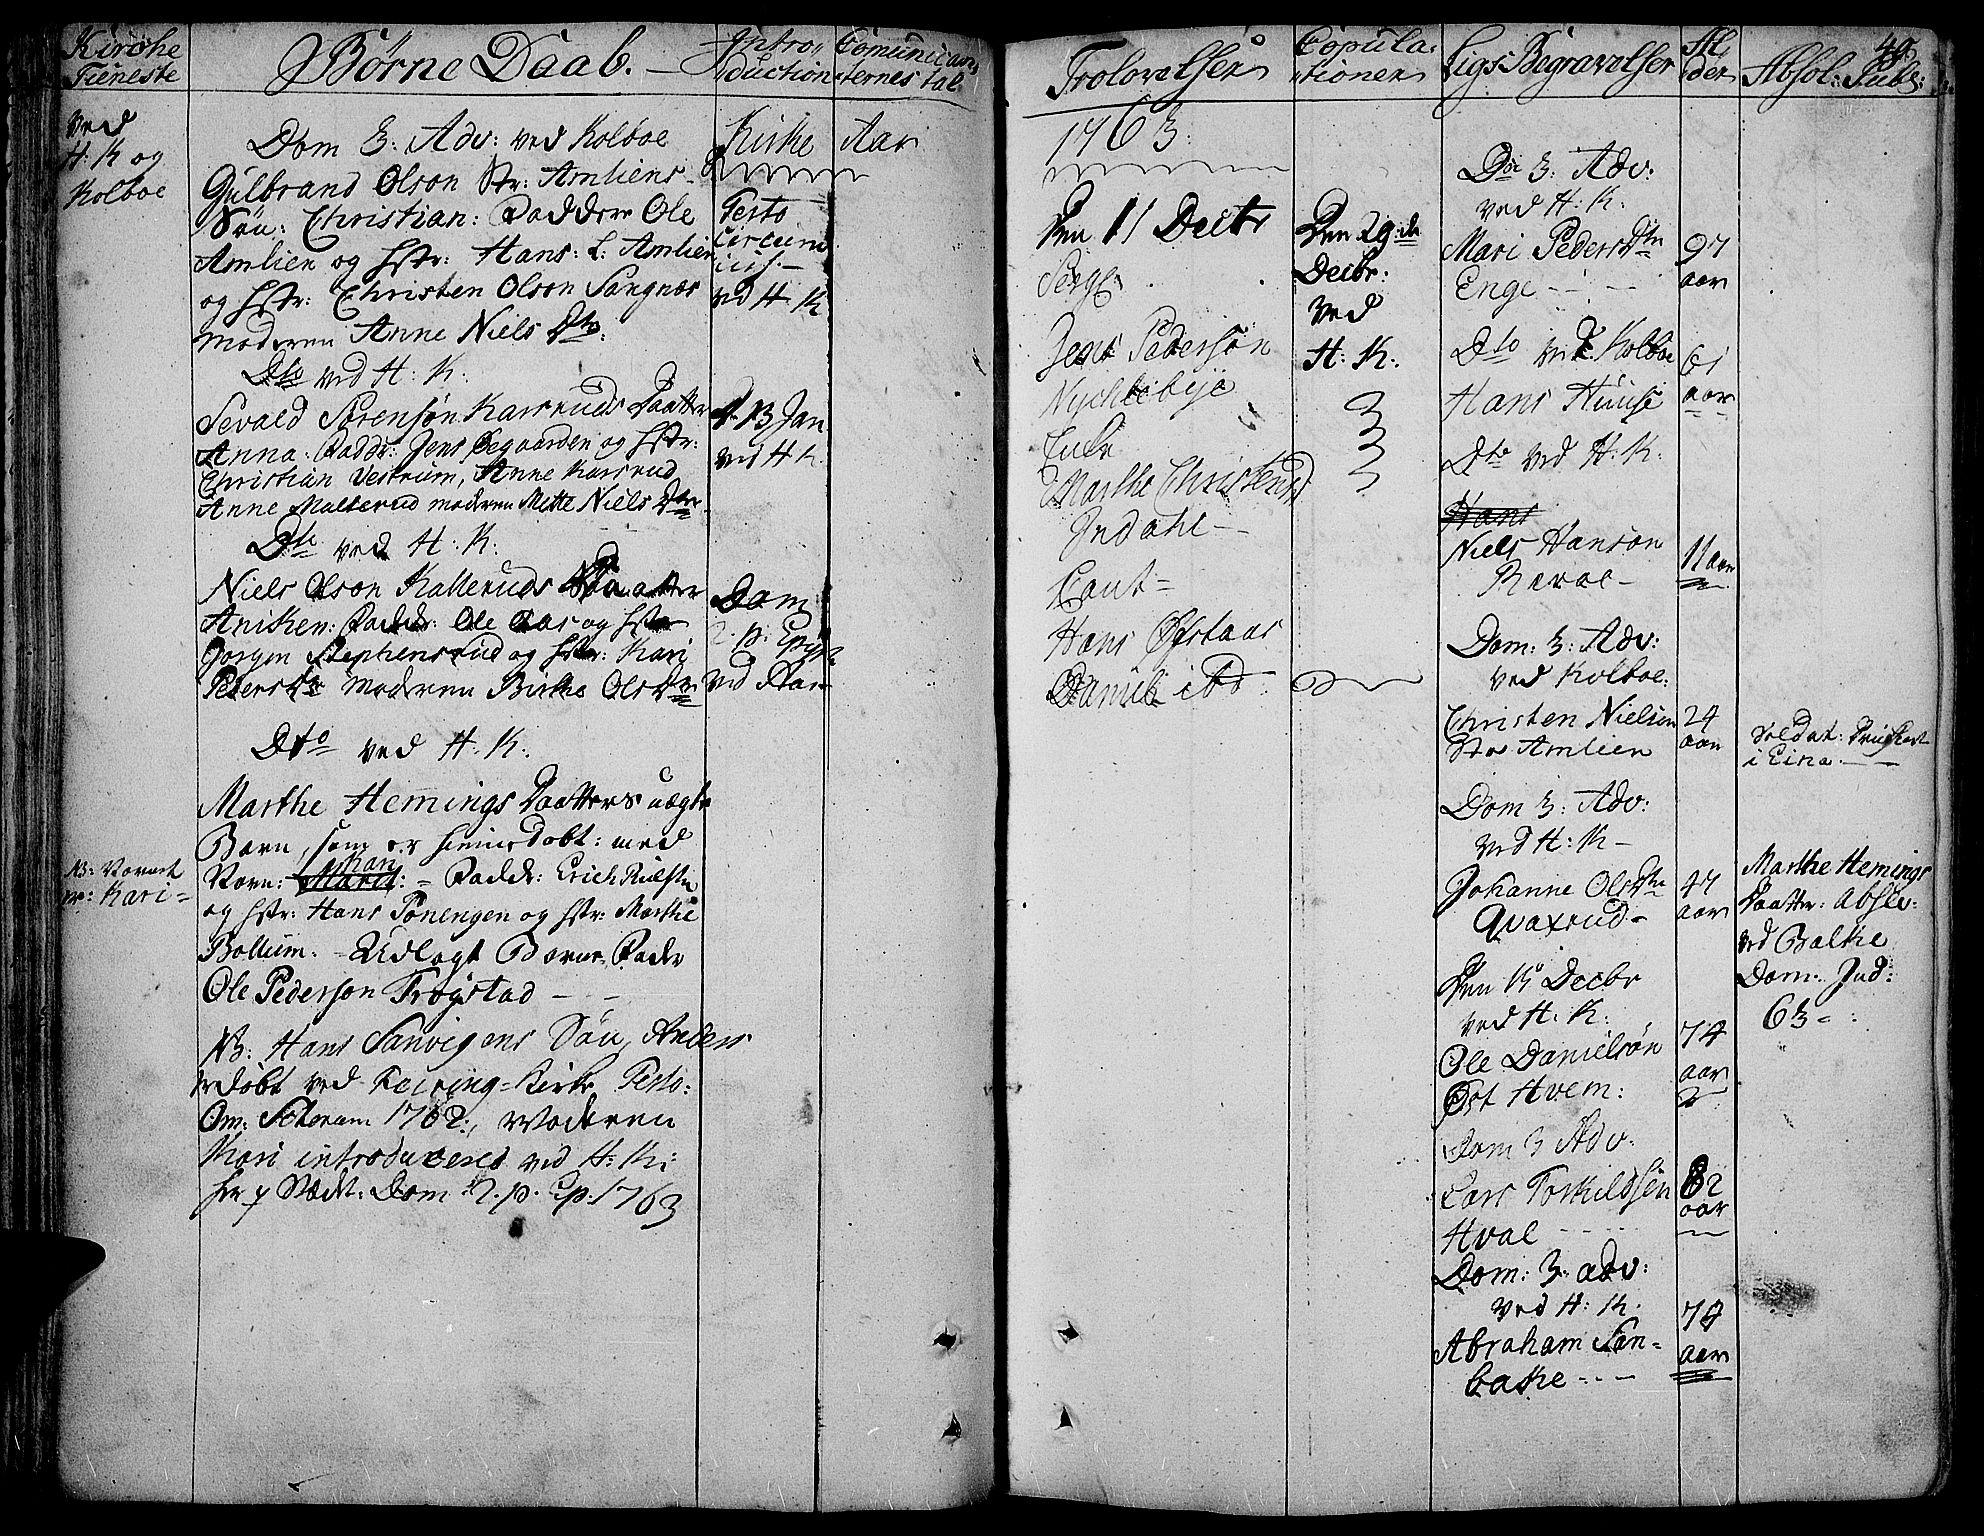 Kirche
Tieneste
Børne Daab. —
Intro-
duction
Comunican-
ternes tal
Ved
H: K og
Kolboe
Dom 3. Adv: ved Kolboe
Kirke Aar
Gulbrand Olson Str: Amliens
Søn: Christian: Faddere Ole
Amlien og Hstr: Hans: L: Amlien
og hstr: Christen Olson Sangnæs
Moderen Anne Niels Dtr:
Festo
Circum
cis. —
ved H. K
Dto ved H: K:
Sevald Sørensøn Karsruds Daatter
Anna. Faddr: Jens Øegaarden og hstr:
Christian Vestrum, Anne Karsrud
Anne Malterud moderen Mette Niels Dtr
d. 13 Jan
ved H K.
Dto ved H. K.
Niels Olson Kalleruds Daatter
Aniken: Fadder: Ole Aas og hstr
Jørgen Stephensrud og hstr: Kari
Peders Dtr Moderen Birthe Ols Dtr
Dom
2. p. Epiph
ved Aas
Dto ved H. K:
Marthe Hemings Daatters uægte
Barn, som er hiemedøbt: med
Navn: Marit: Kari = Fadde: Erich
og hstr: Hans Ponengen og hstr: Marthe
Bollum. - Udlagt Barne Fader
Ole Pederson Frøgstad — —
NB: Navnet
er: Kari =
NB: Hans Sanvigens Søn, Anders
er døbt ved Feiring = Kirke Festo:
Om: Sctorum 1762:, Moderen
Kari introduceret ved H: K:
Dom: 2. p. Ep. 1763
Trolovelser
Copula-
tioner
Ligs Begravelser
Al
der
Absol: Pub:
49
1763:
Den 11 Decbr
Serg:
Jens Pedersøn
Nychlebye
Marthe Christensd
Indahl —
Caut =
Hans Ofstaas
Daniel ibd
Den 29de
Decbr:
ved
H: K.
Do 3. Adv:
ved H: K.
Mari Peders Dtr
Enge - - -
97
aar
Dto ved Kolboe
Hans Huuse
61
aar
Dto ved H: K.
Hans
Niels Hanson
Raval —
11 aar
Dom: 3: Adv:
ved Kolboe:
Christen Nielsen
Str Amlien
24
aar
Soldat:
i Eina —
Dom 3: Adv:
ved H: K —
Johanne Ols Dtr
Qvaxrud —
47
aar
Marthe Hemings
Daatter: Absol:
ved Balke
Dom. Jud:
63 = :
Den 15 Decbr
ved H. K:
Ole Danielsøn
Øst Hvem:
74
aar
Dom 3 Adv:
Lars Torkildsen
Hval - - - -
82
aar
Dom: 3. adv:
ved H: K.
Abraham San-
bake - - -
74
aar